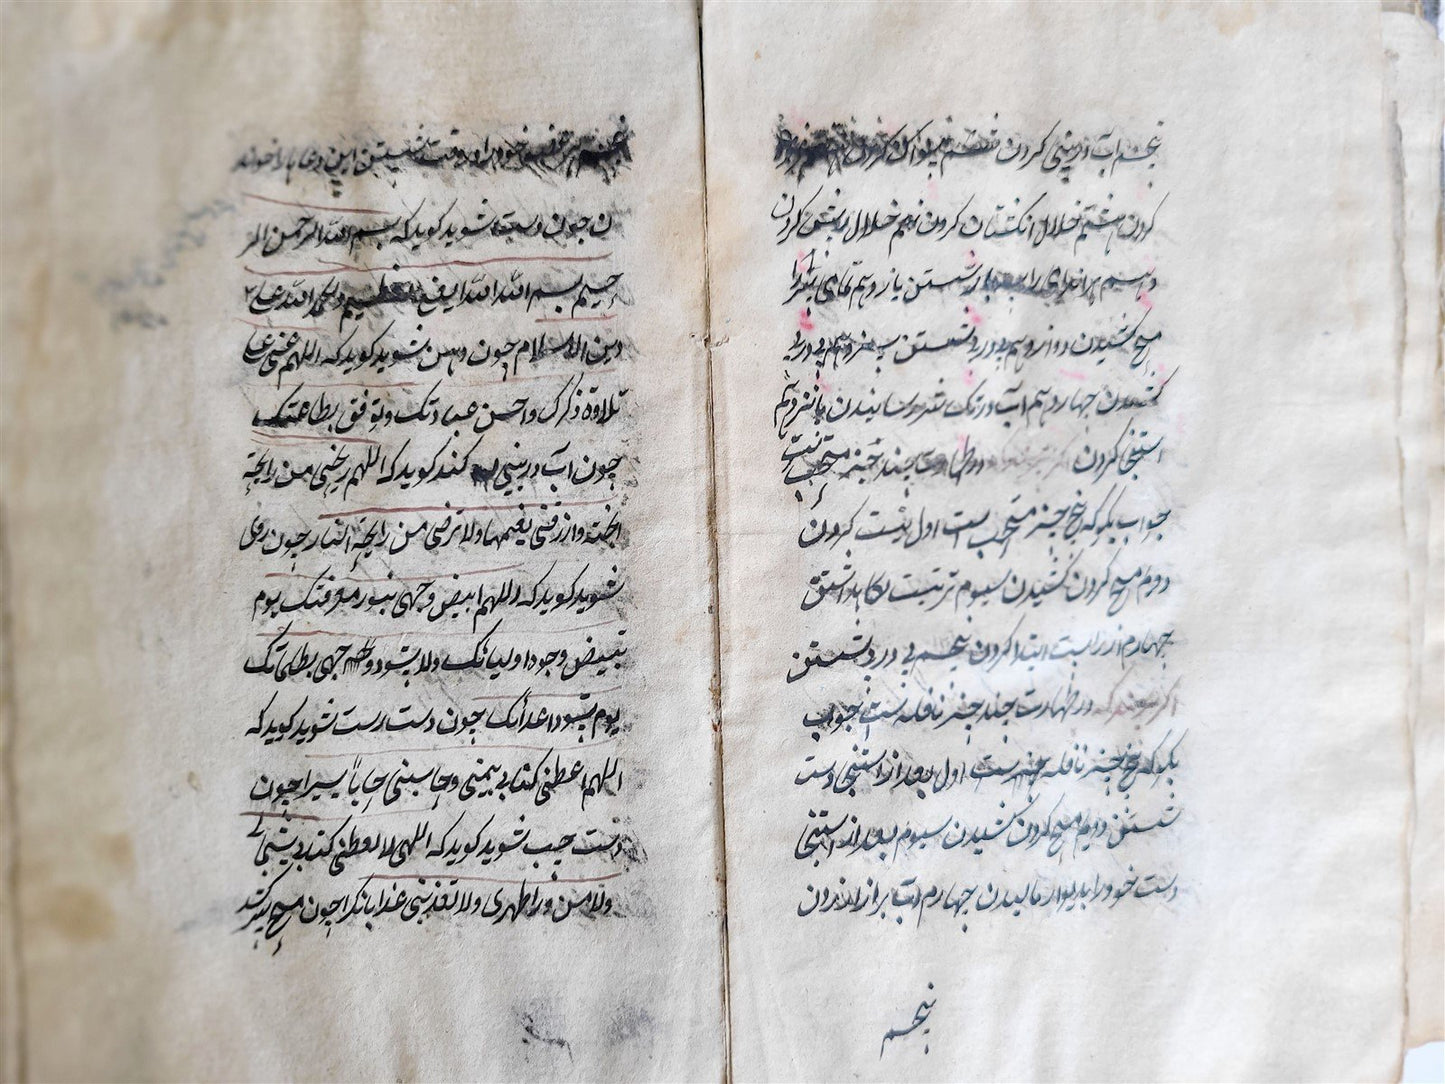 پنجم آب در بینی کردن ششم مسواک کردن هفتم
کردن هشتم خلال انگشتان کردن نهم خلال ریش کردن
دهم هر اندامی را سه بار شستن یازدهم تمامی سر را
مسح کشیدن دوازدهم پی در پی شستن سیزدهم پی در پی
چهاردهم آب در تنک رسانیدن پانزدهم
استنجی کردن در طهارت چند چیز مستحب است
جواب بگو که پنج چیز مستحب است اول نیت کردن
دوم مسح کردن کشیدن سیوم ترتیب نگاه داشتن
چهارم از راست ابتدا کردن پنجم پی در پی شستن
اگر پرسند که در طهارت چند چیز نافله است جواب
بگو که پنج چیز نافله است اول بعد از استنجی دست
شستن دویم مسح کردن کشیدن سیوم بعد از استنجی
دست خود را بدیوار مالیدن چهارم آب بر ازار اندرون
پنجم
خود را در وقت شستن این دعا ها را خواند
ن چون دست شوید کوید که بسم الله الرحمن الر
حیم بسم الله العظیم والحمد الله علی
دین الاسلام چون دهن شوید کوید که اللهم عنی علی
تلاوة ذکرک و احسن عبادتک و توفق بطاعتک
چون آب در بینی کند کوید که اللهم ریحنی من رایحة
الجنة وارزقنی نعیمها ولا ترضی من رایحة النار چون روی
شوید کوید که اللهم ابیض وجهی بنور معرفتک یوم
تبیض وجوه اولیانک ولا تسود وجهی بطلماتک
یوم تسود اعدائک چون دست رست شوید کوید که
اللهم اعطنی کتابی بیمنی وحاسبنی حاباً یسیرا چون
دست چپ شوید کوید که اللهی لا تعطنی کتابی بشمالی
ولا من ورا ظهری ولا تعذبنی عذابا نکرا چون مسح سر کشد